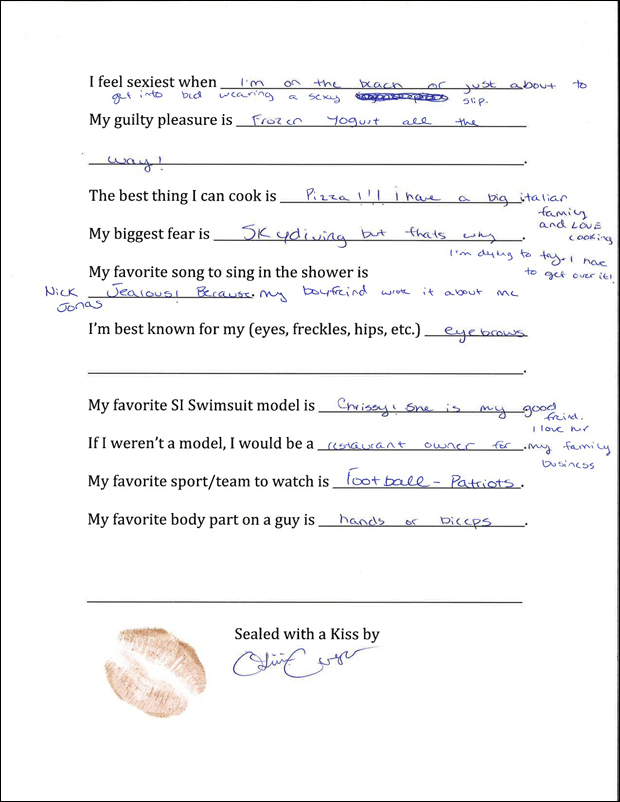 I feel sexiest when I'm on the beach or just about to
get into bed wearing a sexy slip.
My guilty pleasure is Frozen Yogurt all the
way! .
The best thing I can cook is Pizza!!! i have a big italian
family
and LOVE
cooking
My biggest fear is SKydiving but thats why .
I'm dying to try. I have
to get over it!
My favorite song to sing in the shower is
Nick
Jonas
Jealous! Because my boyfreind wrote it about me
I'm best known for my (eyes, freckles, hips, etc.) eyebrows
.
My favorite SI Swimsuit model is Chrissy! she is my good
freind.
I love her
If I weren't a model, I would be a restaurant owner for my family
business
My favorite sport/team to watch is Football - Patriots.
My favorite body part on a guy is hands or biceps .
Sealed with a Kiss by